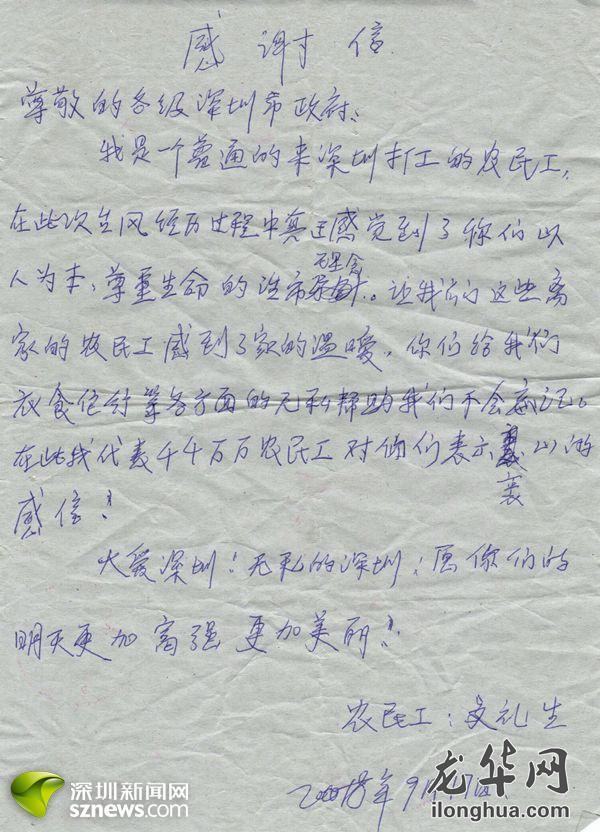 感谢信
尊敬的各级深圳市政府：
我是一个普通的来深圳打工的农民工，
在此次台风经历过程中真正感觉到了你们以
人为本，尊重生命的
让我们这些离
家的农民工感到了家的温暖，你们给我们
衣食住行等各方面的无私帮助我们不会忘记。
在此我代表千千万万农民工对你们表示衷心的
感信！
大爱深圳！无私的深圳！愿你们的
明天更加富强更加美丽！
农民工：文礼生
年9月
深圳新闻网
sznews.com
龙华网
ilonghua.com